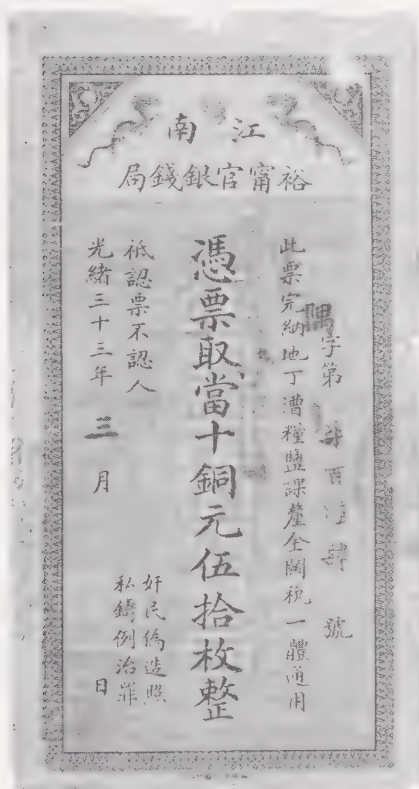 江南
裕甯官銀錢局
隅字第柒百　肆號
此票完納地丁漕糧鹽課釐金關稅一體通用
憑票取當十銅元伍拾枚整
祇認票不認人
奸民偽造照
私鑄例治罪
光緒三十三年三月　日